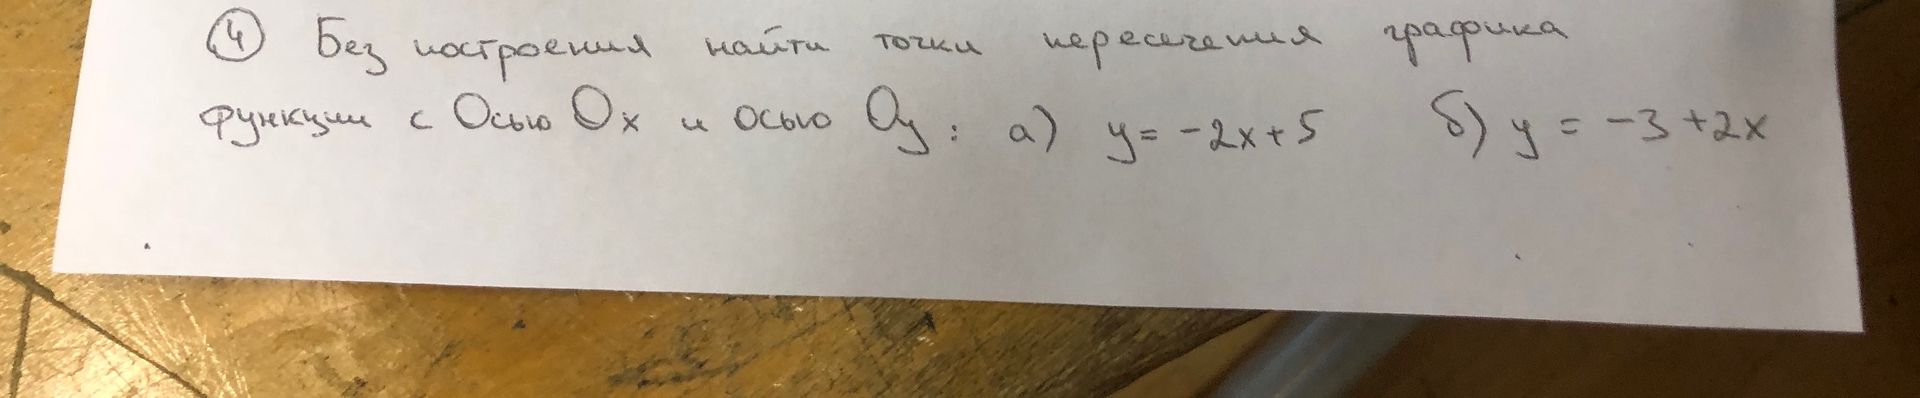 ④ Без построения найти точки пересечения графика
функции с Осью Ox и осью Oy: а) y = -2x+5 б) y = -3+2x